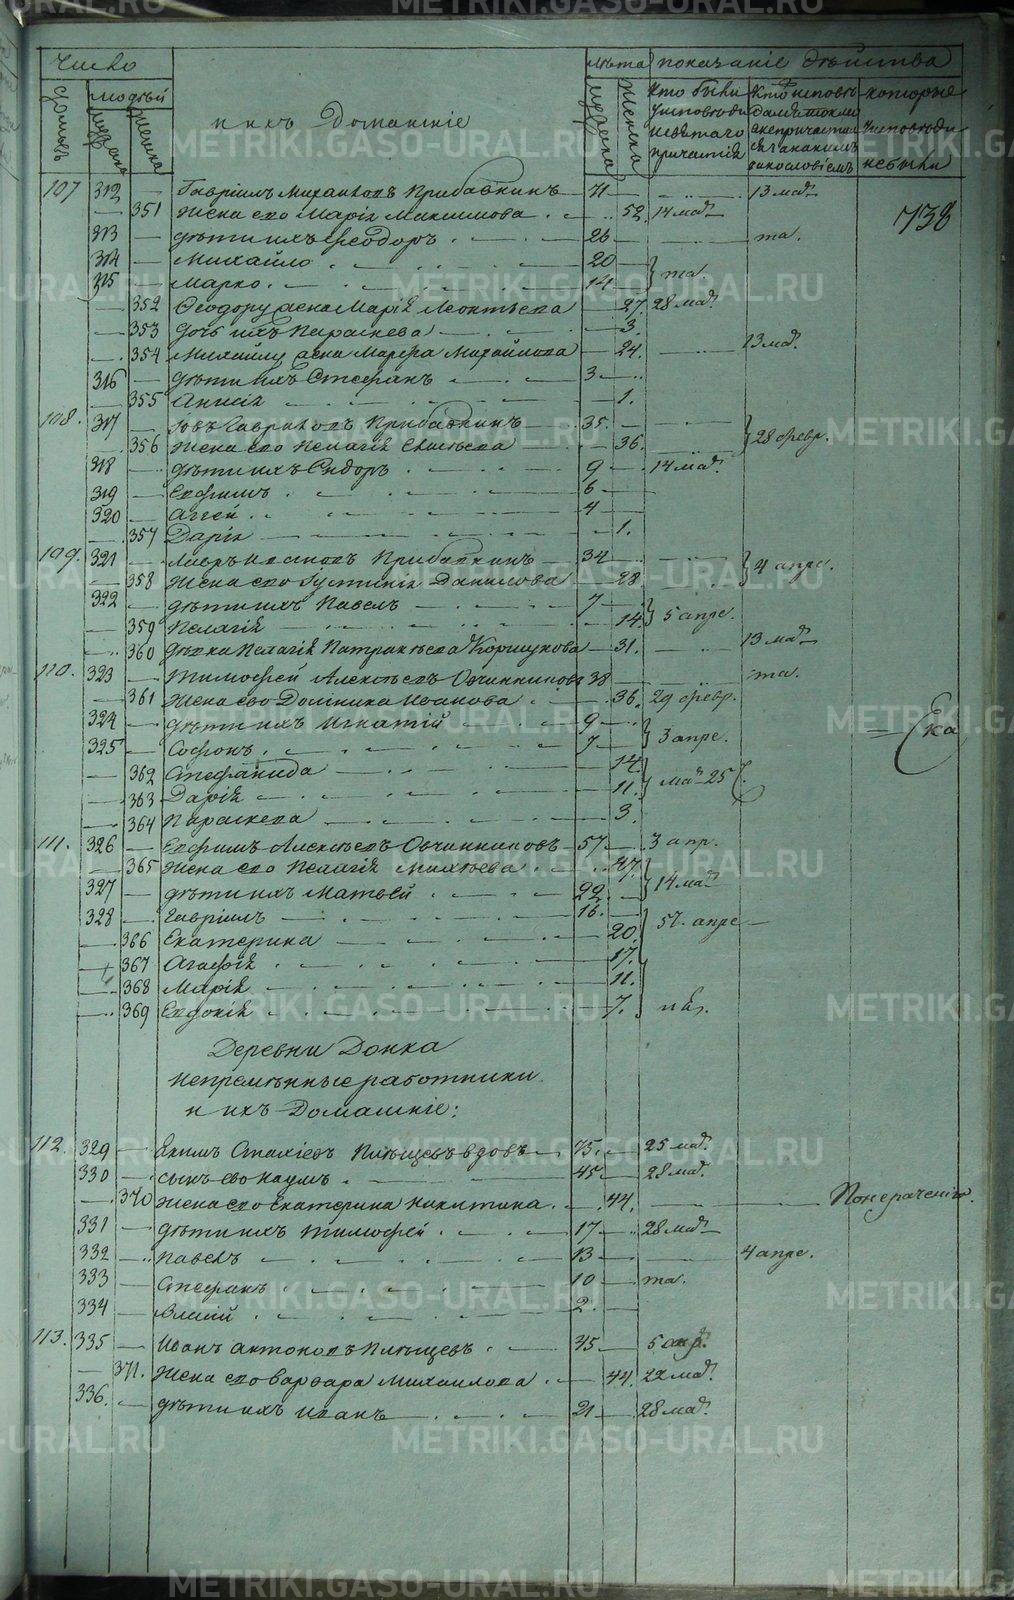 Число
Лѣта показаніе дѣйства
домовъ
людей
мужска
женска
и ихъ Домашніе
мужска
женска
кто были у исповѣди и святаго причастія
Кто исповѣдался токмо а не причастился и за какимъ винословіемъ
которые у исповѣди не были
738
107 312 — Гавріилъ Михайловъ Прибавкинъ — 71 — 13 мар
351 Жена его Марія Максимова 52. 14 мар
313 — дѣти ихъ Ѳеодоръ 26 — та.
314 — Михайло 20
315 — Марко 14 та.
352 Ѳеодору жена Марія Леонтьева 27. 28 мар
353 дочь ихъ Параскева 3.
354 Михайлу жена Марѳа Михайлова 24. 13 мар.
316 — дѣти ихъ Стефанъ 3
355 Анисія 1.
108. 317 — Іовъ Гавриловъ Прибавкинъ 35.
356 Жена его Пелагія 36. 28 февр.
318 — дѣти ихъ Сидоръ 9 — 14 мар.
319 — Евфимъ 6
320 — Аггей 4
357 Дарія 1.
109. 321 — Лавръ Ивановъ Прибавкинъ 34
358 Жена его Іустинія Данилова 28 4 апре.
322 — дѣти ихъ Павелъ 7
359 Пелагія 14. 5 апре.
360 дѣвка Пелагія Патракѣева Коршукова 31. 13 мар
110. 323 — Тимофей Алексѣевъ Овчинниковъ 38 та.
361 Жена его Домника Иванова 36. 29 февр.
324 — дѣти ихъ Игнатій 9
325 — Софонъ 7 3 апре.
Ека
362 Стефанида 14.
363 Дарія 11. мар 25
364 Параскева 3.
111. 326 — Евфимъ Алексѣевъ Овчинниковъ 57 3 апр.
365 Жена его Пелагія 47.
327 — дѣти ихъ Матвей 22. 14 мар
328 — Гавріилъ 16.
366 Екатерина 20. апре
367 Агафія 17.
368 Марія 11.
369 Евдокія 7.
Деревни Донка
непремѣнные работники
и ихъ Домашніе:
112. 329 — Якимъ Плѣщевъ вдовъ 75. 25 мар.
330 — сынъ его Наумъ 45 28 мар.
370 Жена его Екатерина Никитина 44. По нераченію.
331 — дѣти ихъ Тимофей 17 28 мар
332 — Павелъ 13 4 апре.
333 — Стефанъ 10 — та.
334 — Власій 2.
113. 335 — Иванъ Антоновъ Плѣщевъ 45 5 апр.
371. Жена его Варвара Михайлова 44. 22 мар.
336. — дѣти ихъ Иванъ 21 28 мар.
METRIKI.GASO-URAL.RU